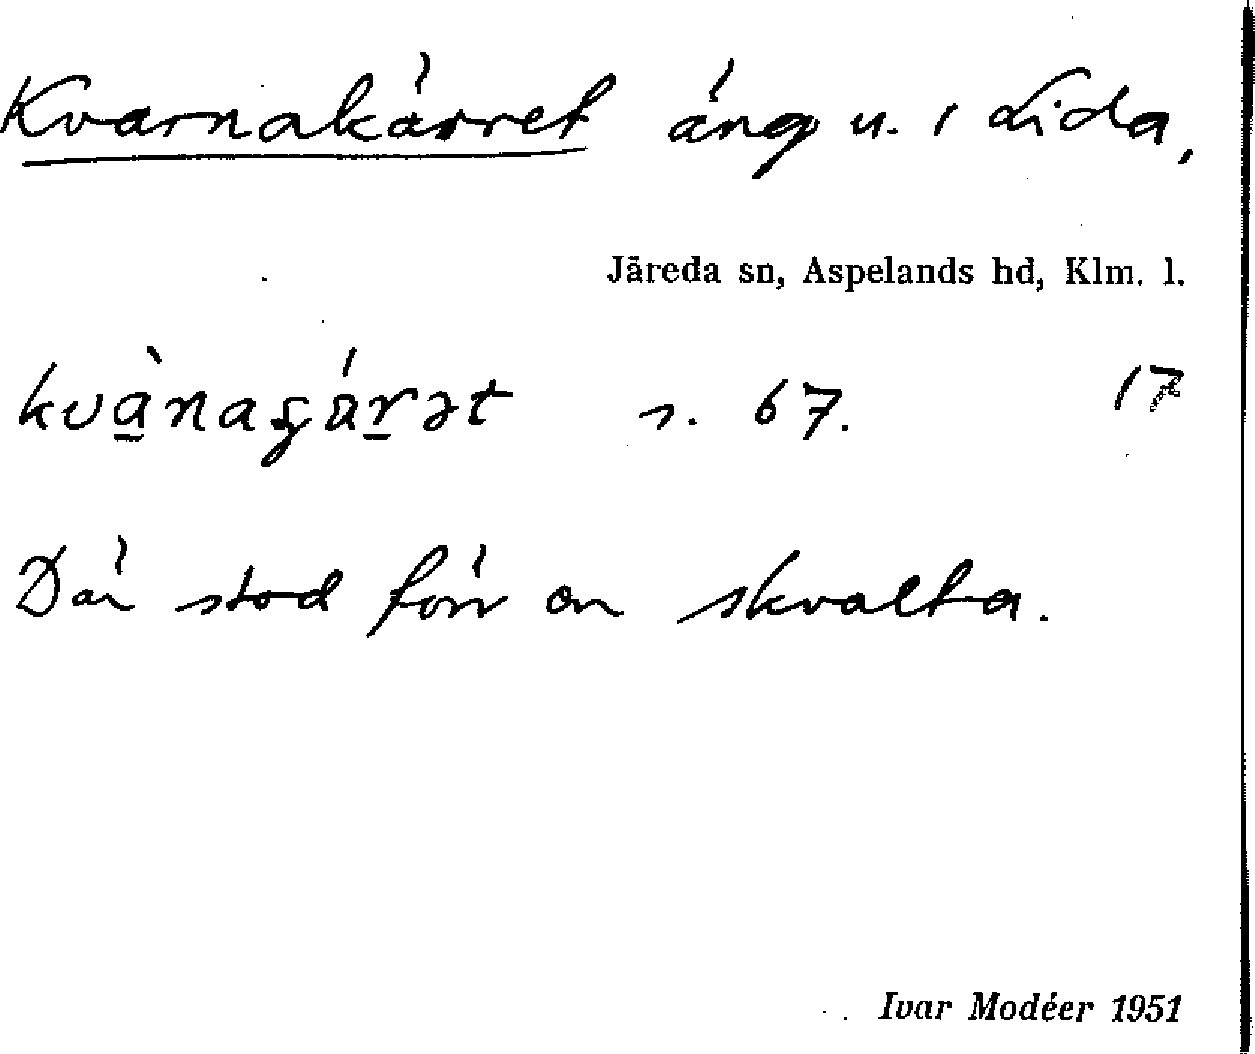 Kvarnakärret äng u. 1 Lida,
Järeda sn, Aspelands hd, Klm. l.
s. 67. 17
Där stod förr en skvalta.
Ivar Modéer 1951